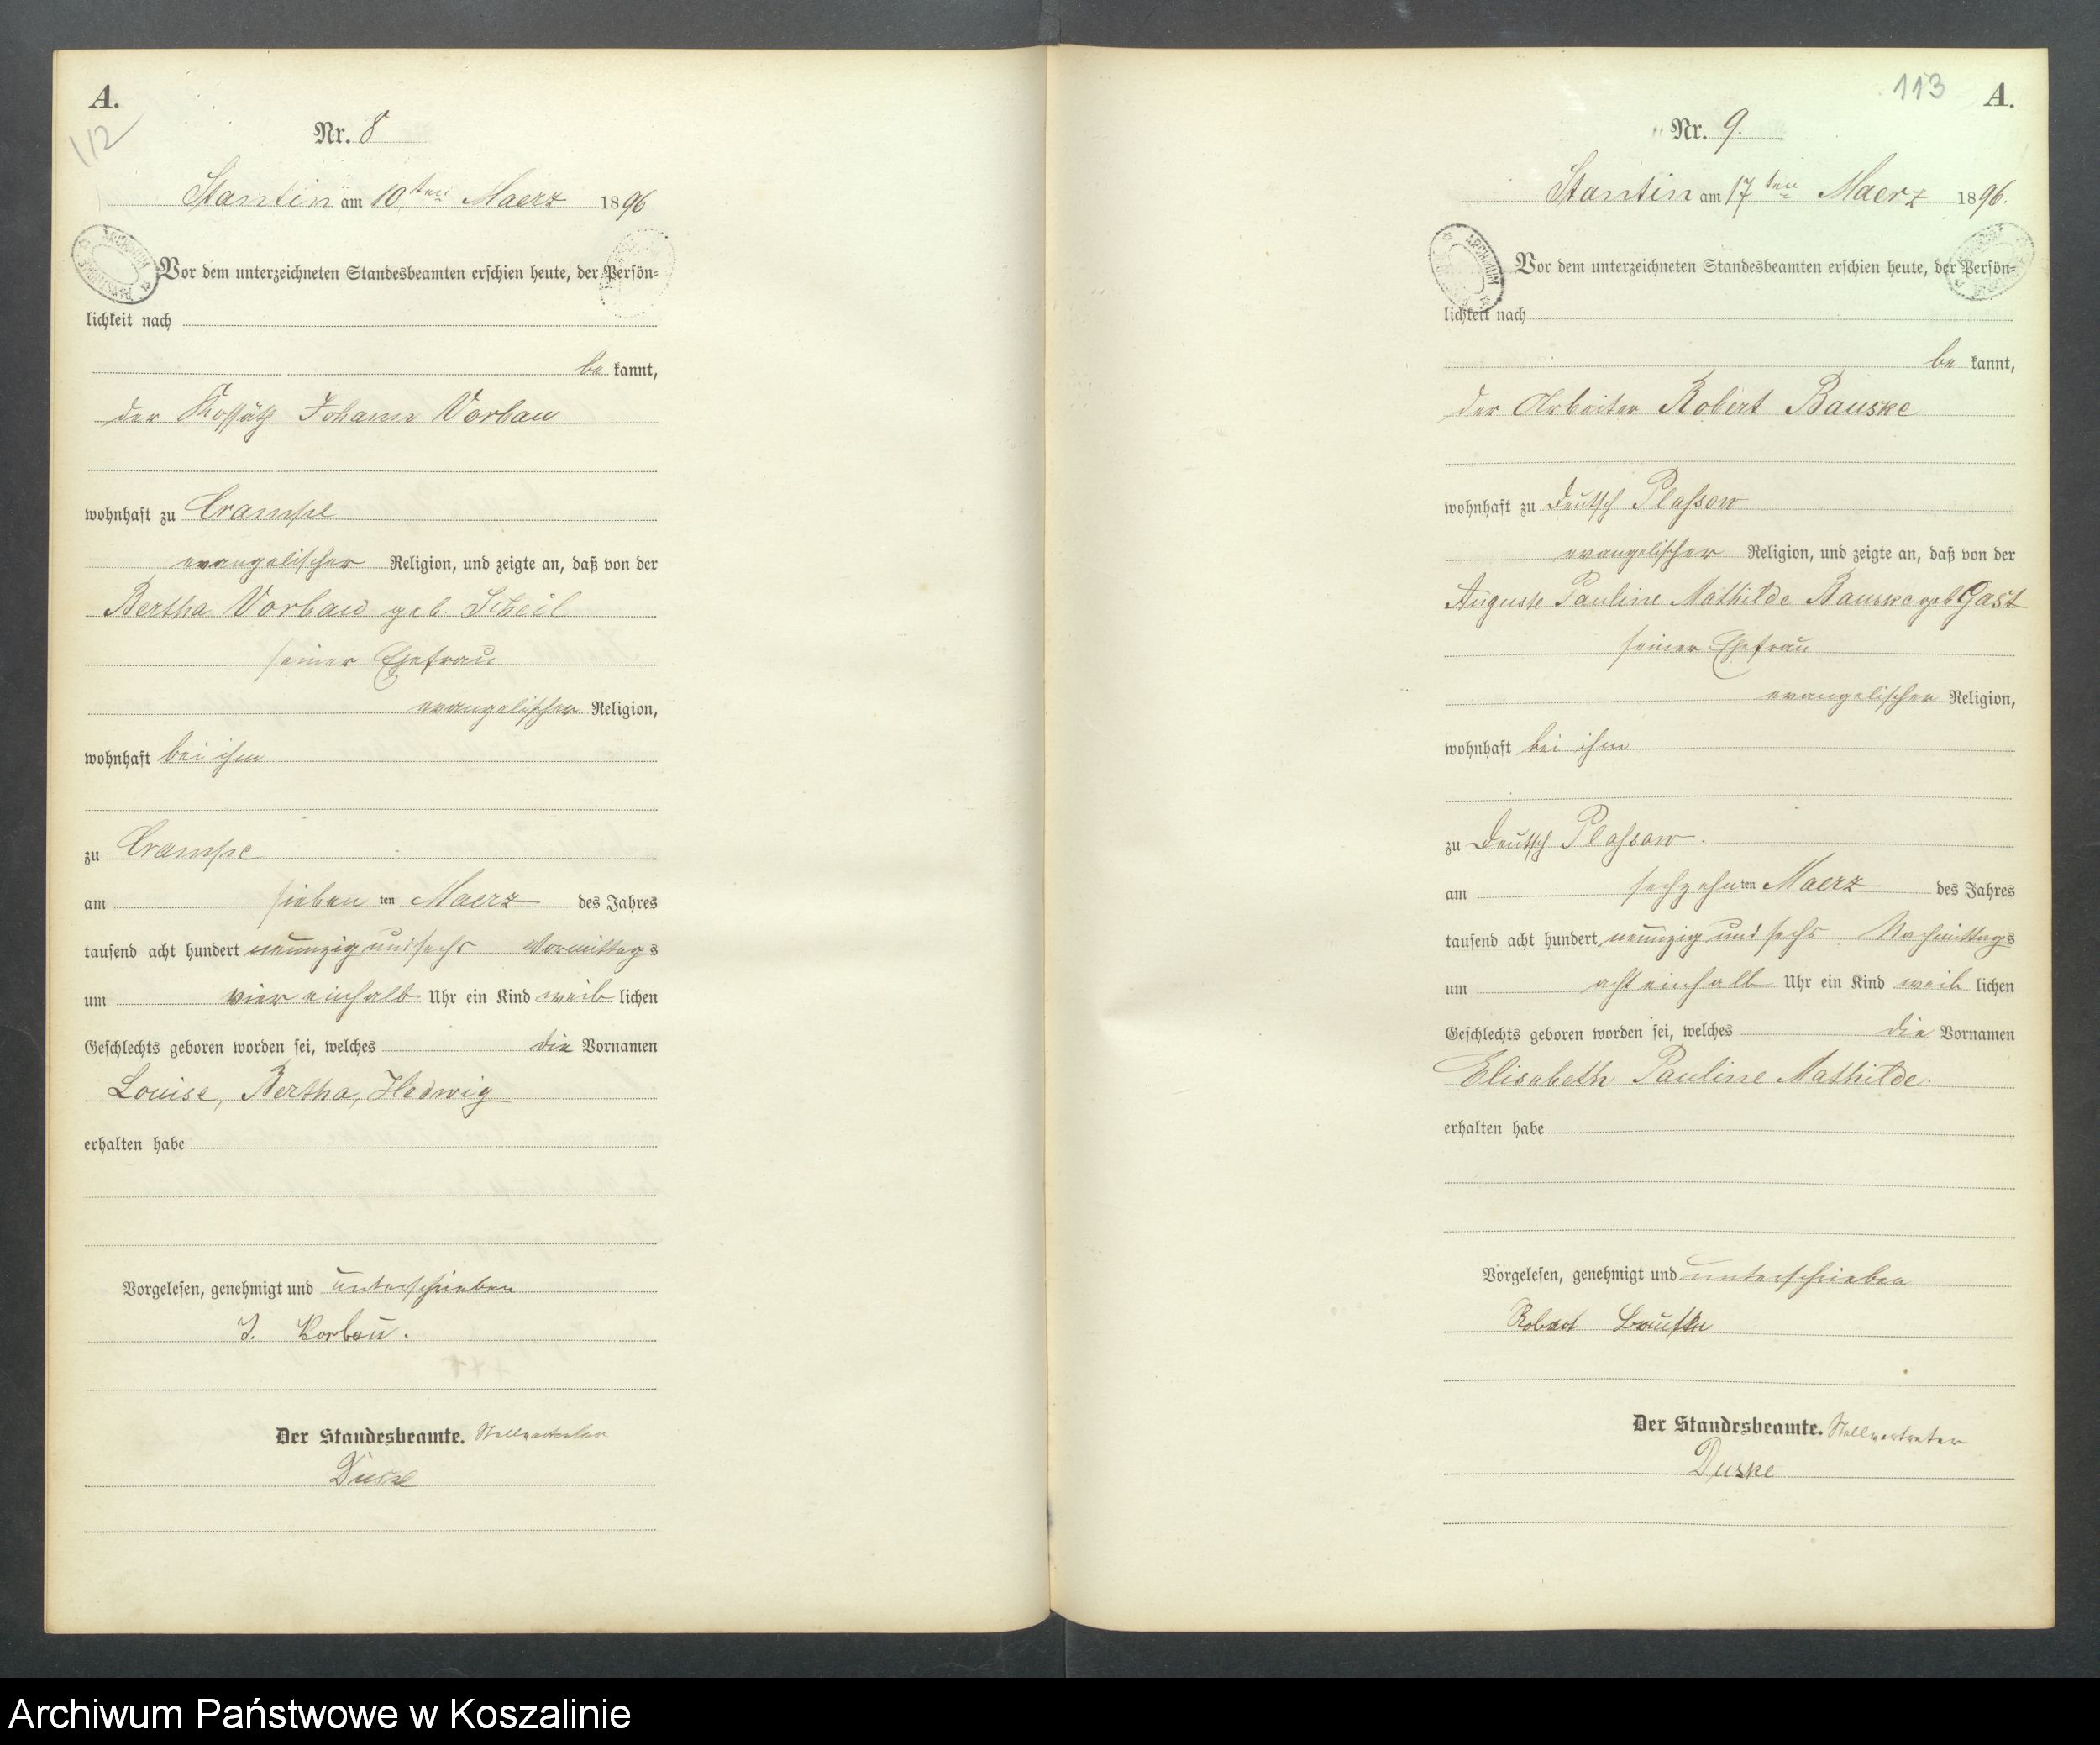 A.
112
Nr. 8
Stantin am 10ten Maerz 1896
Vor dem unterzeichneten Standesbeamten erschien heute, der Persön=
lichkeit nach
be kannt,
der Kossäth Johann Vorbau
wohnhaft zu Crampe
evangelischer Religion, und zeigte an, daß von der
Bertha Vorbau geb. Scheil
seiner Ehefrau
evangelischer Religion,
wohnhaft bei ihm
zu Crampe
am sieben ten Maerz des Jahres
tausend acht hundert neunzig und sechs Vormittags
um vier einhalb Uhr ein Kind weib lichen
Geschlechts geboren worden sei, welches die Vornamen
Louise, Bertha, Hedwig
erhalten habe
Vorgelesen, genehmigt und unterschrieben
J. Vorbau.
Der Standesbeamte. Stellvertreter
Duske
113
A.
Nr. 9.
Stantin am 17ten Maerz 1896.
Vor dem unterzeichneten Standesbeamten erschien heute, der Persön=
lichkeit nach
be kannt,
der Arbeiter Robert Bauske
wohnhaft zu Deutsch Plassow
evangelischer Religion, und zeigte an, daß von der
Auguste Pauline Mathilde Bauske geb Gast
seiner Ehefrau
evangelischer Religion,
wohnhaft bei ihm
zu Deutsch Plassow.
am sechzehn ten Maerz des Jahres
tausend acht hundert neunzig und sechs Nachmittags
um acht einhalb Uhr ein Kind weib lichen
Geschlechts geboren worden sei, welches die Vornamen
Elisabeth Pauline Mathilde.
erhalten habe
Vorgelesen, genehmigt und unterschrieben
Robert Bauske
Der Standesbeamte. Stellvertreter
Duske
Archiwum Państwowe w Koszalinie